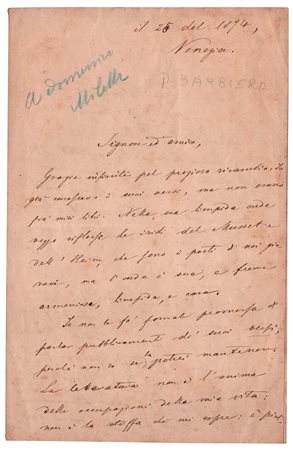 il 25 del 1874,
Venezia.
A Domenico
Milelli
R. BARBIERA
Signore ed amico,
Grazie infinite pel prezioso ricambio. Io
già conosceva i suoi versi, ma non erano
fra' miei libri. Nella sua limpida onda
veggo riflesse le iridi del Musset e
dell' Heine, che sono i poeti di noi gio-
vani, ma l'onda è sua, e freme
armoniosa, limpida, e cara.
Io non le fo' formal promessa di
parlar pubblicamente de' suoi versi,
perché non so se la potrei mantenere.
La letteratura non è l'anima
delle occupazioni della mia vita;
non è la stoffa che mi copre: è